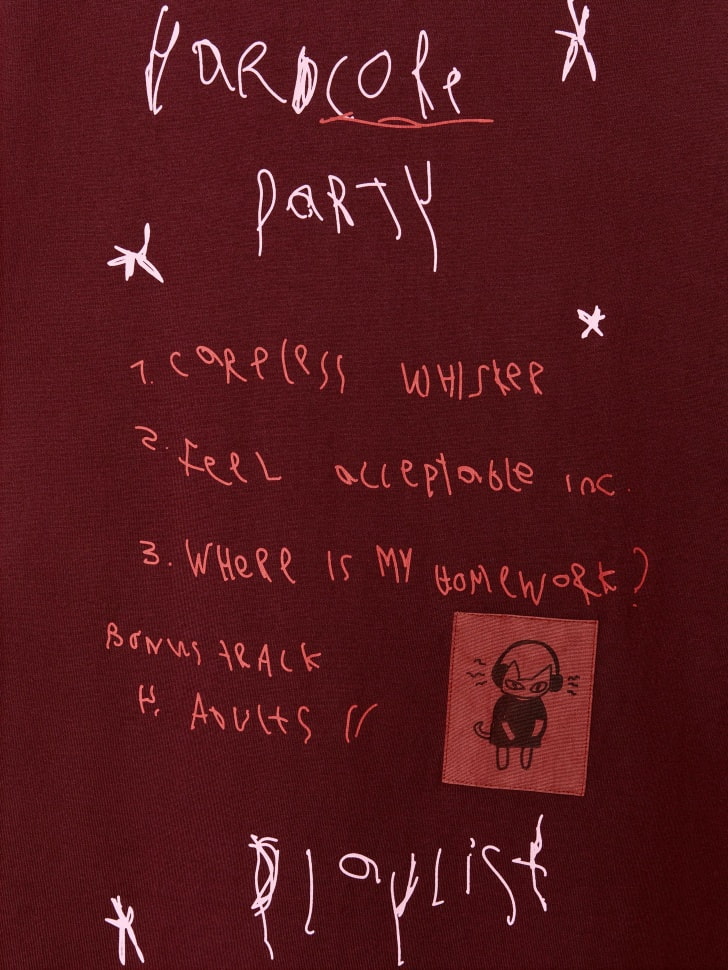 HARDCORE
PARTY
1. CARELESS WHISKER
2. FEEL acceptable inc.
3. WHERE IS MY HOMEWORK?
BONUS TRACK
4. ADULTS
PLAYLIST